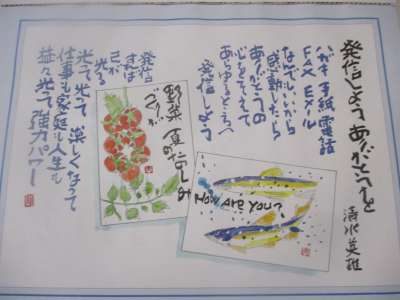 発信しようありがとうを
清水英雄
ハガキ 手紙 電話
FAX Eメール
なんでもいいから
感動したら
ありがとうの
心をそえて
あらゆるところへ
発信しよう
HOW ARE YOU?
野菜
夏のたのしみ
発信
すれば
己が
光る
光って光って 楽しくなって
仕事も家庭も人生も
益々光って 強力パワー